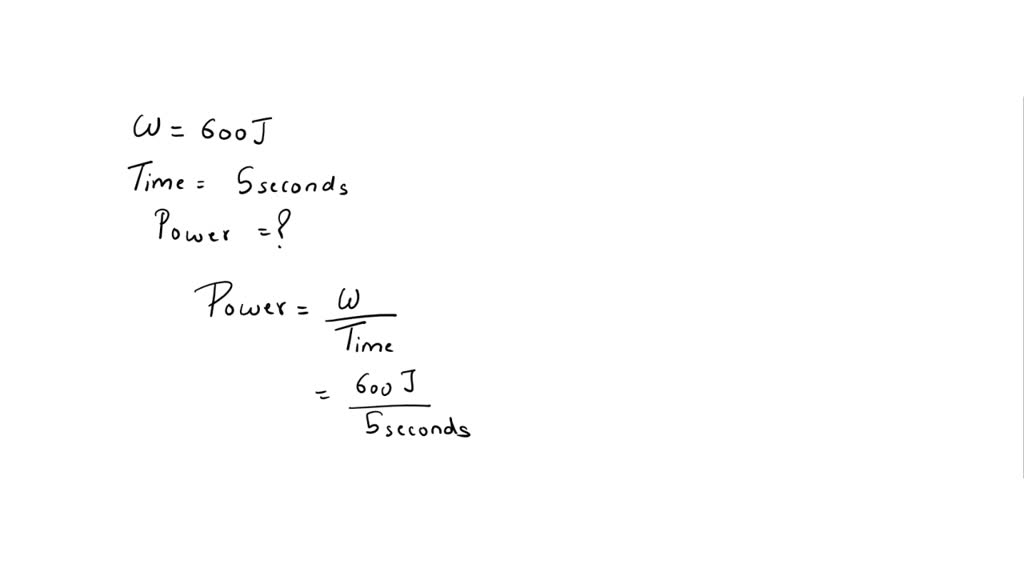 W = 600J
Time = 5 seconds
Power = ?
Power = W / Time
= 600 J / 5 seconds